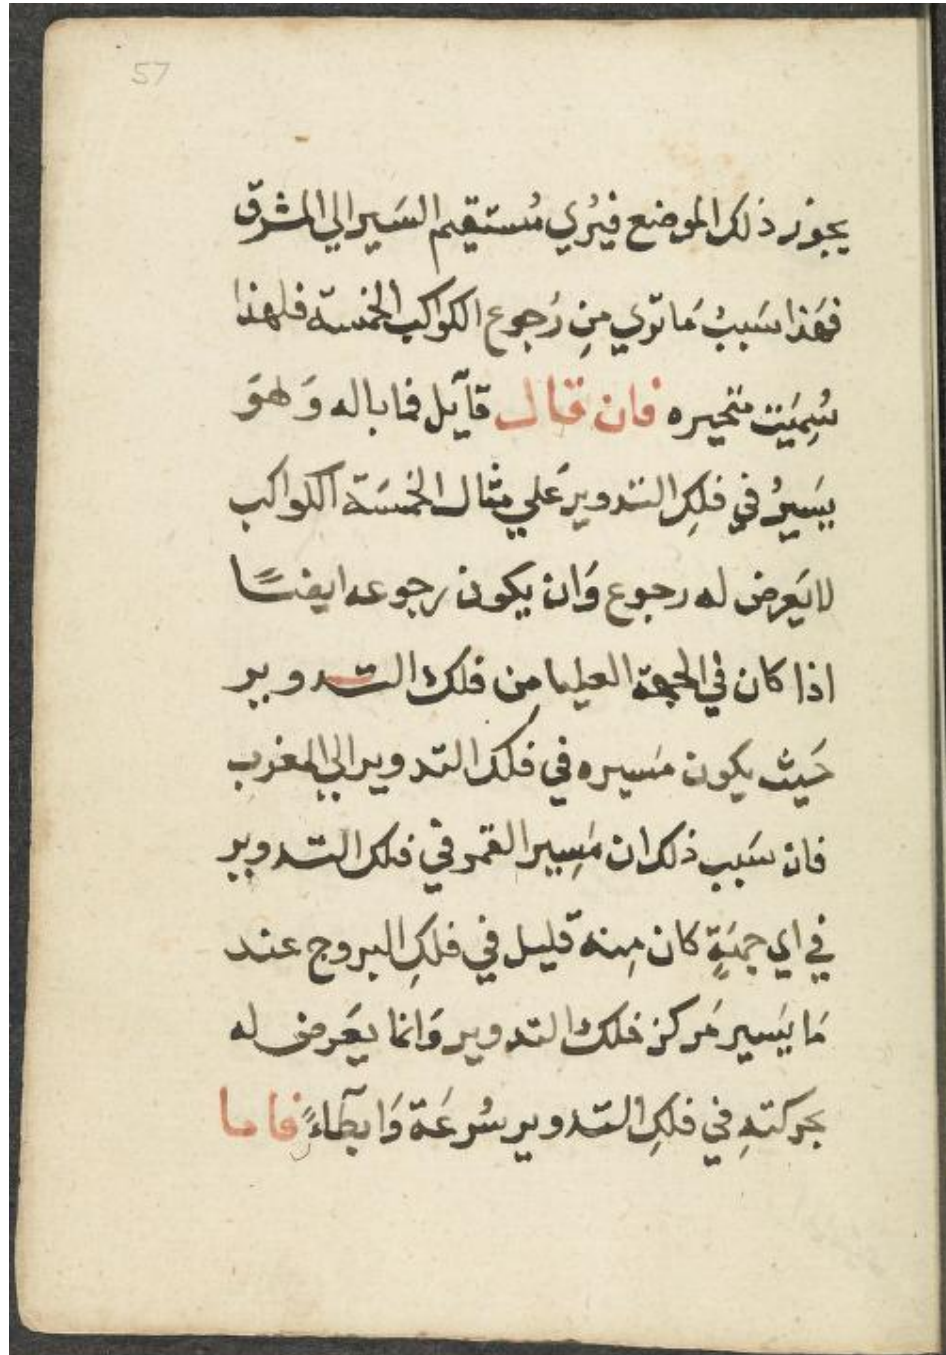 57
يجوز ذلك الموضع فيُري مُستقيم السَير الي المشرق
فهَذا سَبب مَا تري مِن رُجوع الكواكب الخمسة فلهذا
سُمِيَت متحيره فان قال قآيل فما باله وَهوَ
يسَيرُ في فلكِ التدوير عَلي مثال الخمسَة الكواكب
لا يَعرض له رجوع وَان يكون رجوعه ايضًا
اذا كان في الجهة العليا من فلك التدوير
حَيث يكون مَسيره في فلك التدوير الي المغرب
فان سَبب ذلك ان مَسِير القمر في فلك التدوير
في اي جهَةٍ كان مِنه قليل في فلكِ البروج عند
مَا يَسير مَركز فلك التدوير وَانما يعَرض له
بحركتهِ في فلكِ التدوير سُرعَة وَابطآءً فاما